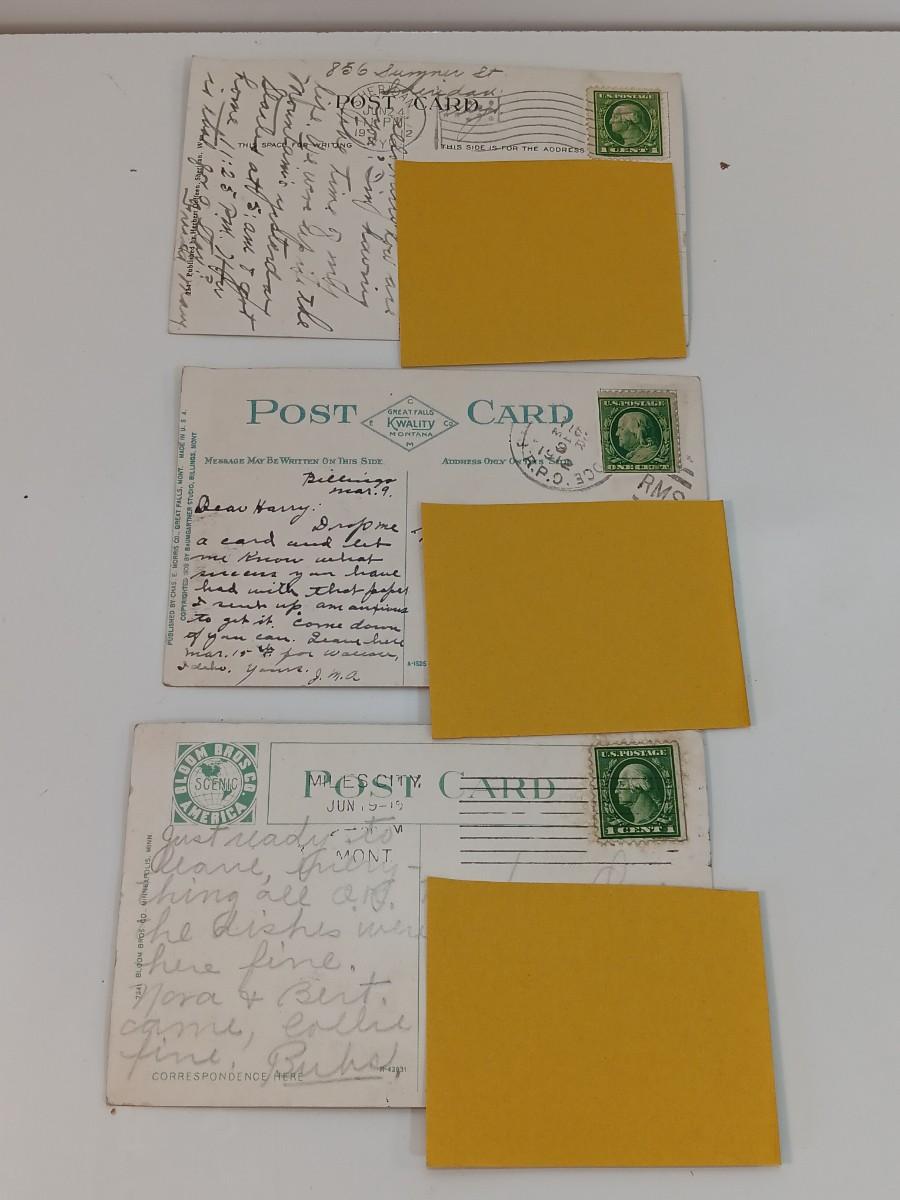 856 Sumner St
Sheridan
Wyo
POST CARD
SHERIDAN
JUN 24
THIS SPACE FOR WRITING
THIS SIDE IS FOR THE ADDRESS
U.S. POSTAGE
1 CENT 1
how are
you? I'm having
the time of my
life. We were up in the
Mountains yesterday
Started at 5 am & got
home 11:25 P.M.
POST CARD
GREAT FALLS
KWALITY
MONTANA
C E CO M
MESSAGE MAY BE WRITTEN ON THIS SIDE
ADDRESS ONLY ON THIS SIDE
U.S. POSTAGE
ONE CENT
MAR 9 1912
R.P.O.
RMS
PUBLISHED BY CHAS. E. MORRIS CO., GREAT FALLS, MONT. MADE IN U.S.A.
COPYRIGHTED 1909 BY BAUMGARTNER STUDIO, BILLINGS, MONT
Billings
Mar. 9.
Dear Harry:
Drop me
a card and let
me know what
success you have
had with that paper
I sent up, am anxious
to get it. Come down
if you can. Leave here
Mar. 15th for Wallace,
Idaho. Yours.
J.M.A
A-1525
BLOOM BROS CO
SCENIC
AMERICA
POST CARD
MILES CITY
JUN 19-15
M
MONT
U.S. POSTAGE
1 CENT 1
7341 BLOOM BROS CO. MINNEAPOLIS, MINN
Just ready to
leave, Every-
thing all O.K.
The dishes were
here fine.
Nora & Bert.
came, Collie
fine.
CORRESPONDENCE HERE